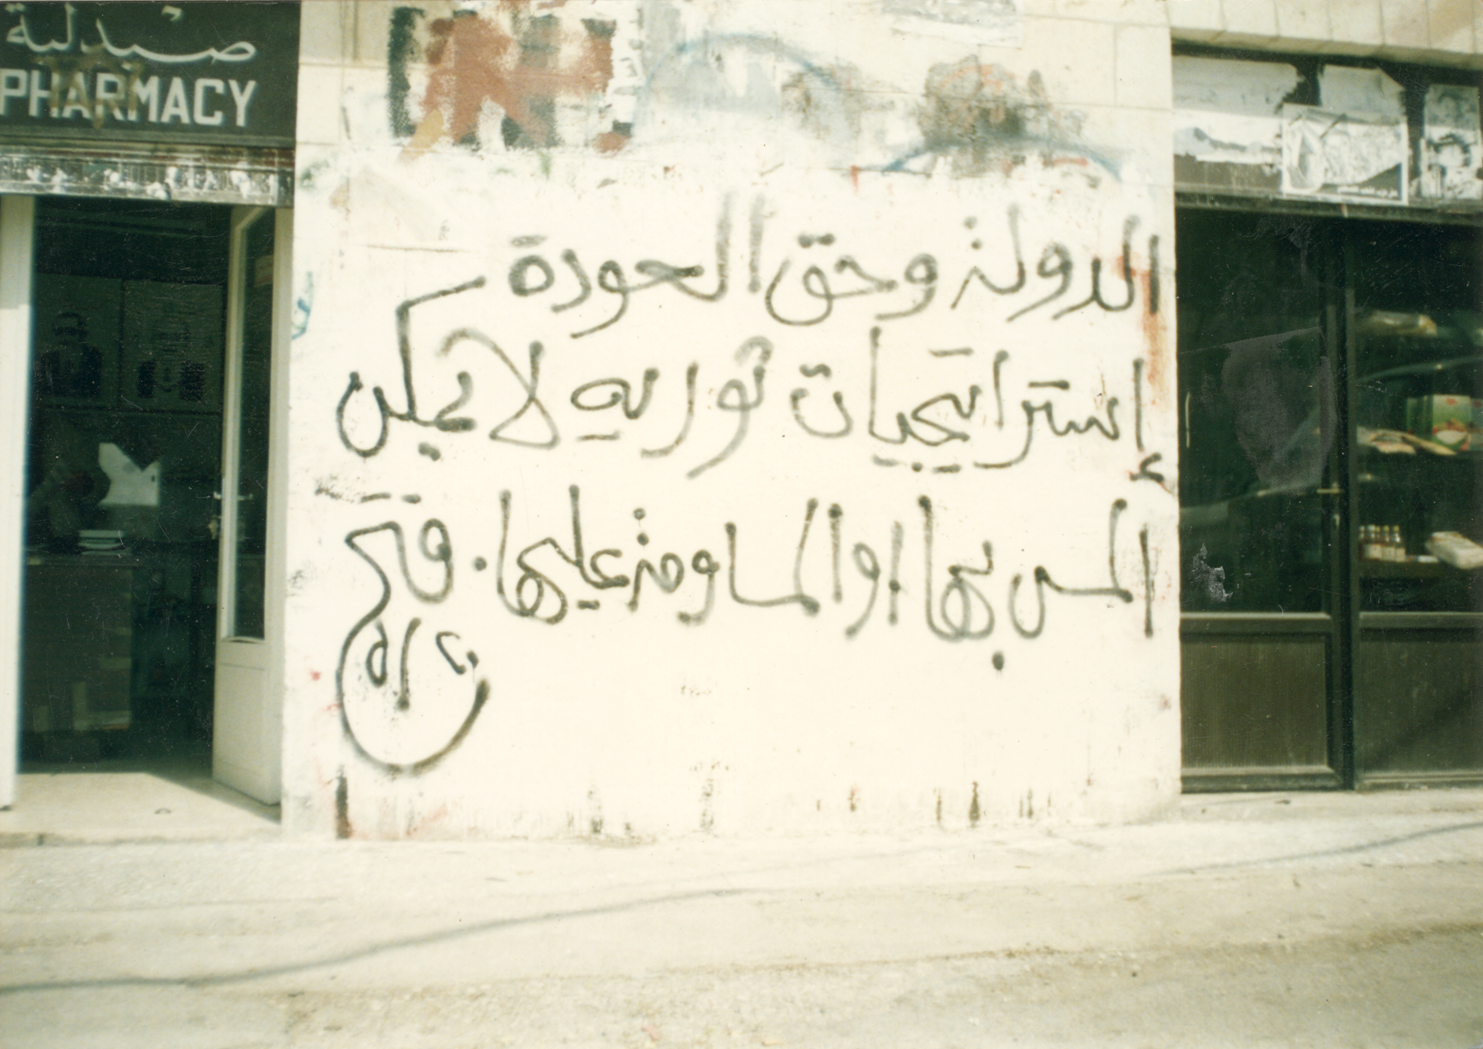 صيدلية
PHARMACY
الدولة وحق العودة
إستراتيجيات ثورية لا يمكن
المس بها او المساومة عليها. فتح